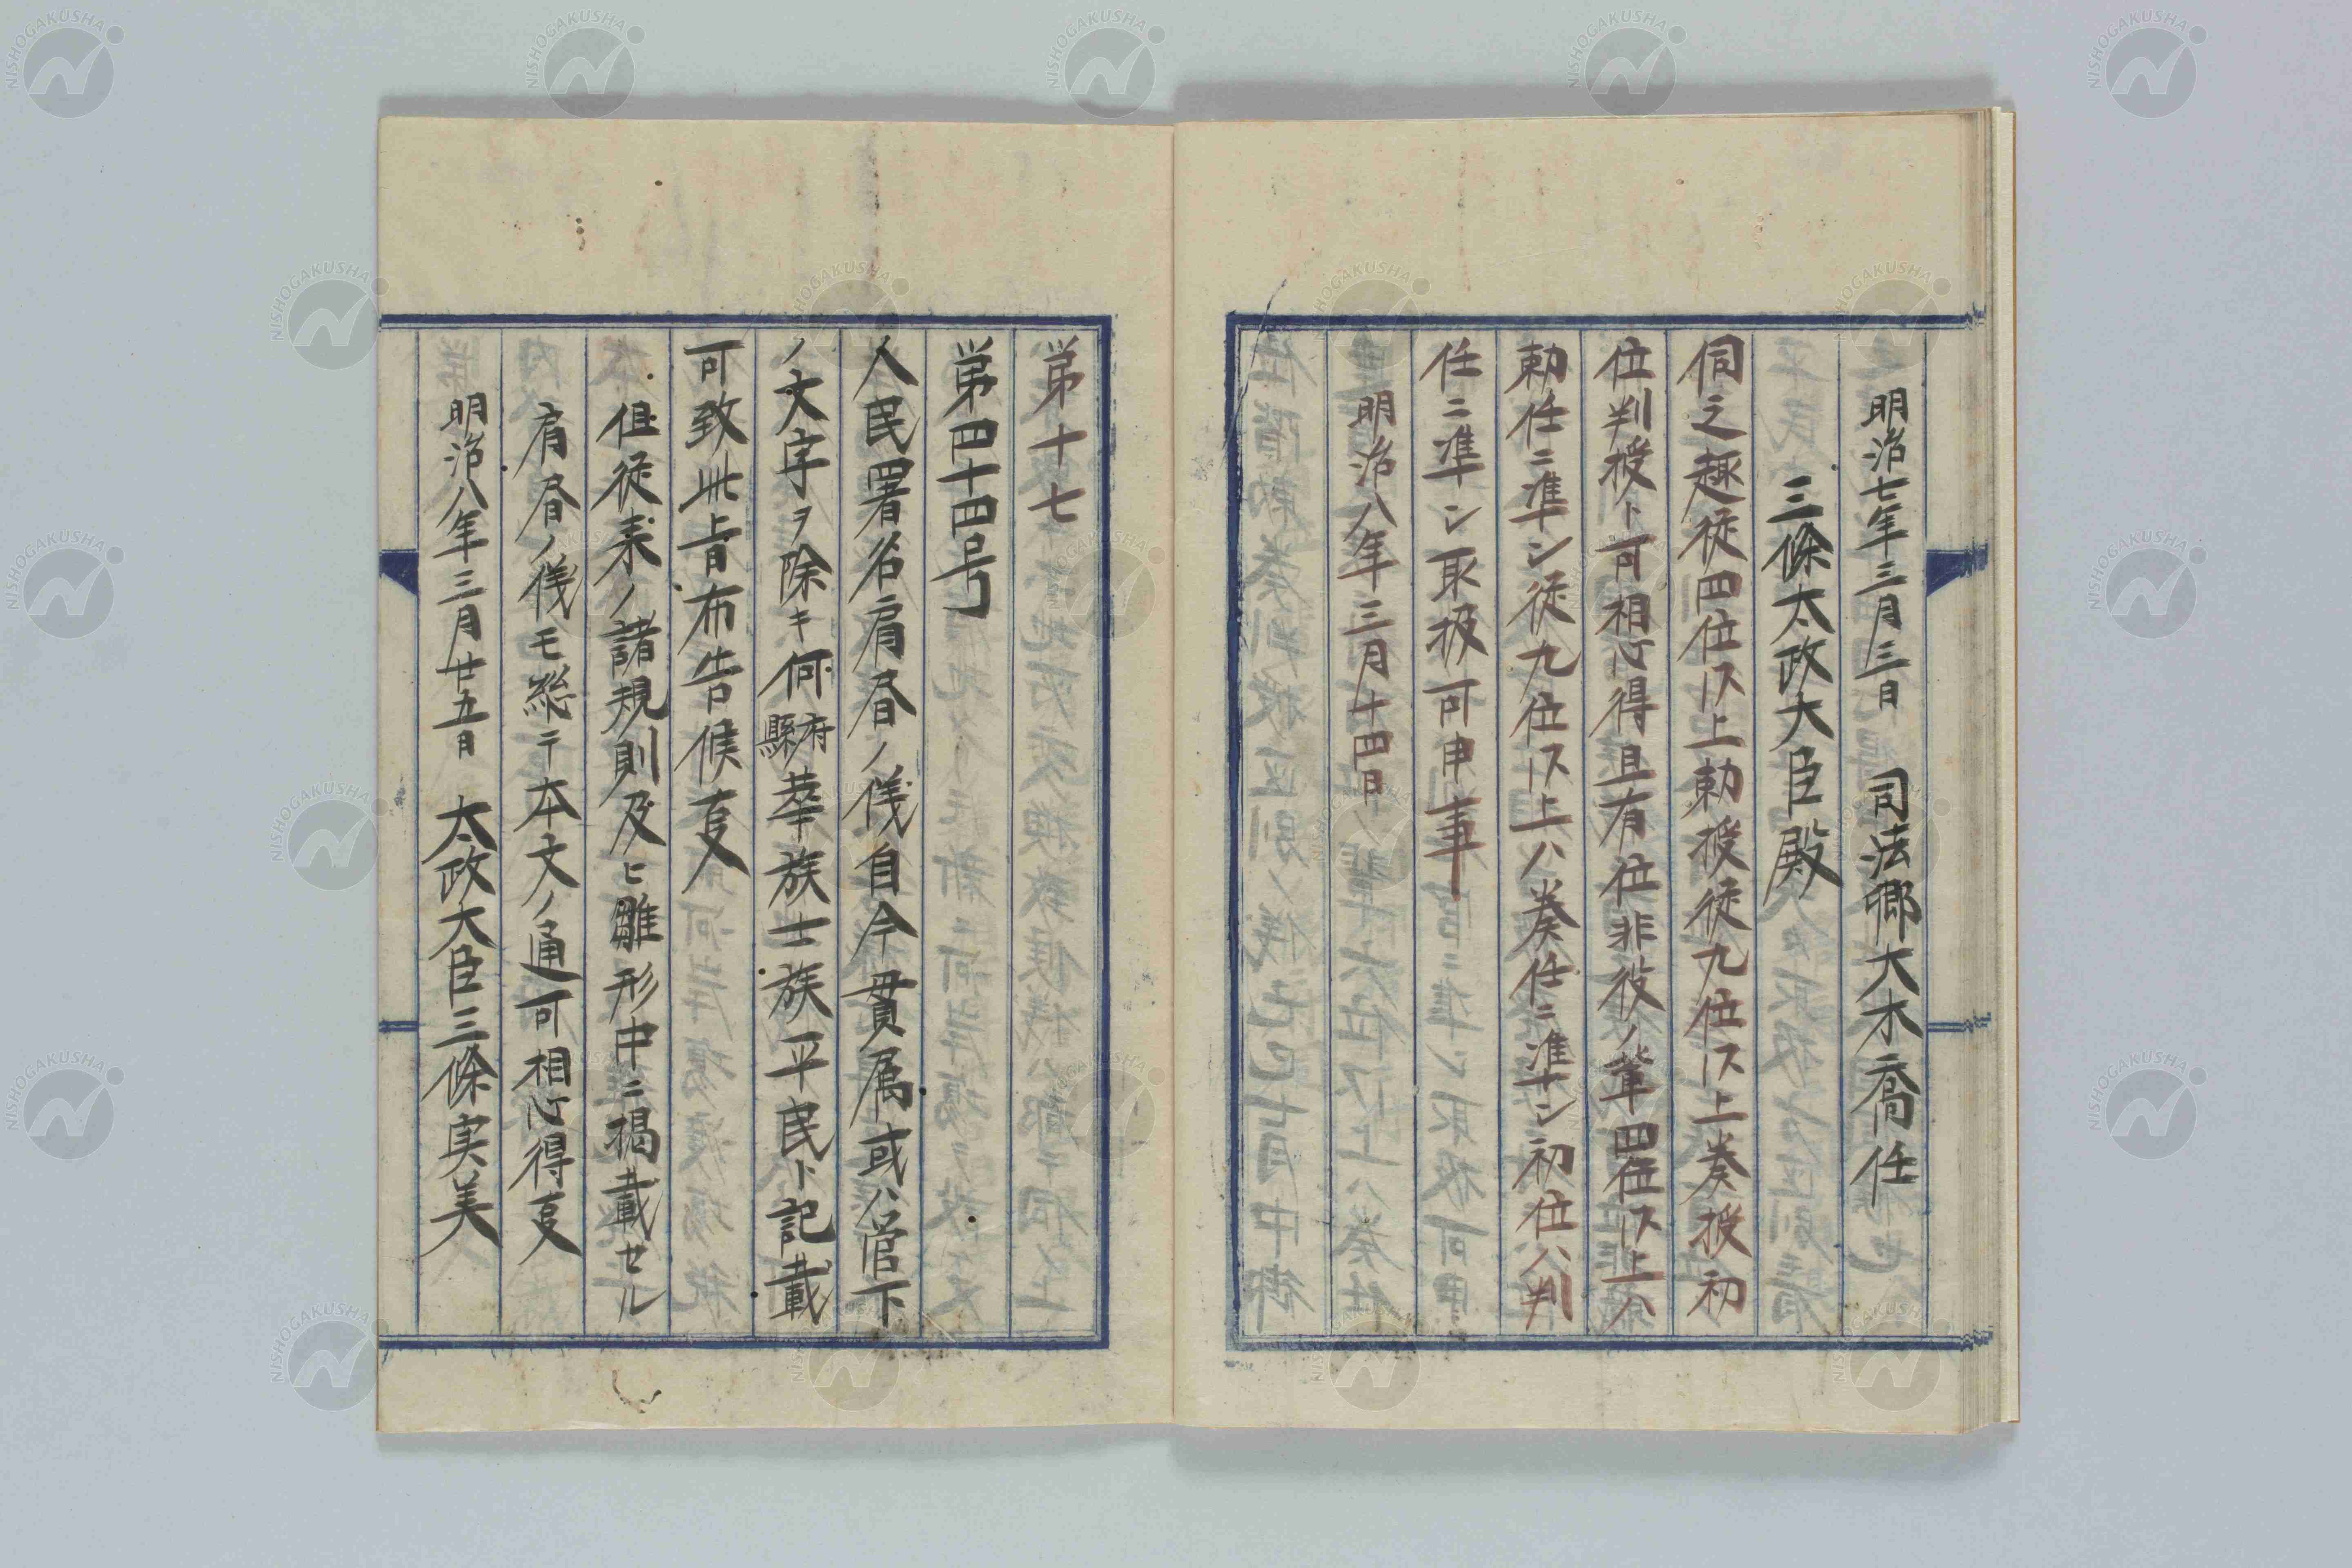 明治七年三月三日　司法卿大木喬任
三條太政大臣殿
伺之趣従四位以上勅授従九位以上奏授初
位判授ト可相心得且有位非役ノ輩四位以上ハ
勅任ニ準シ従九位以上ハ奏任ニ準シ初位ハ判
任ニ準シ取扱可申事
明治八年三月十四日
第十七
第四十四号
人民署名肩書ノ儀自今貫属或ハ管下
ノ文字ヲ除キ何府縣華族士族平民ト記載
可致此旨布告候事
但従来ノ諸規則及ヒ雛形中ニ掲載セル
肩書ノ儀モ総テ本文ノ通可相心得事
明治八年三月廿五日　太政大臣三條実美
NISHOGAKUSHA